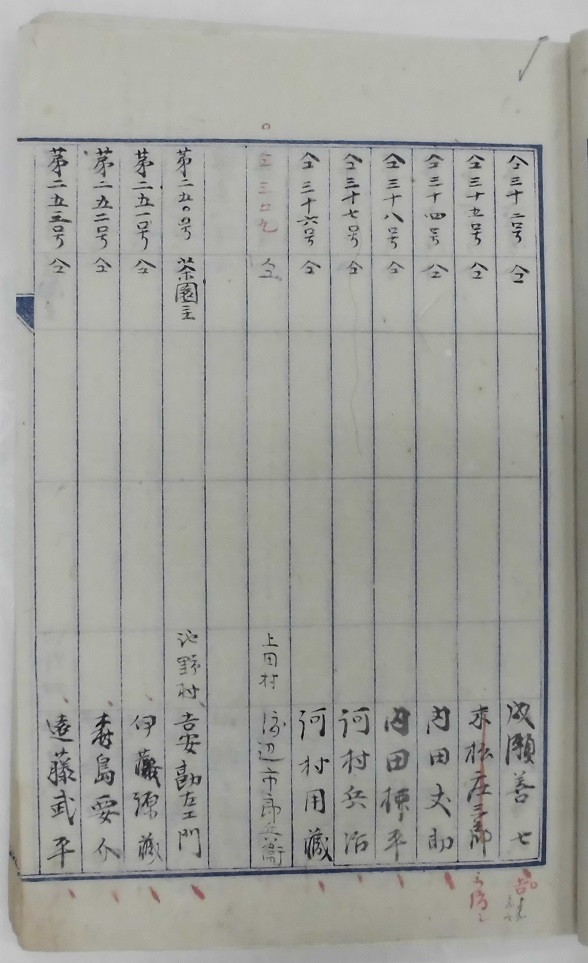 仝三十二号 仝 成瀬善七
仝三十五号 仝 末松庄三郎
仝三十四号 仝 内田丈助
仝三十八号 仝 内田棟平
仝三十七号 仝 河村兵治
仝三十六号 仝 河村用蔵
仝三四九 仝 上田村 渡辺市郎兵衛
第二五〇号 茶園主 池野村 吉安勘左エ門
第二五一号 仝 伊藤源蔵
第二五二号 仝 森島要介
第二五三号 仝 遠藤武平